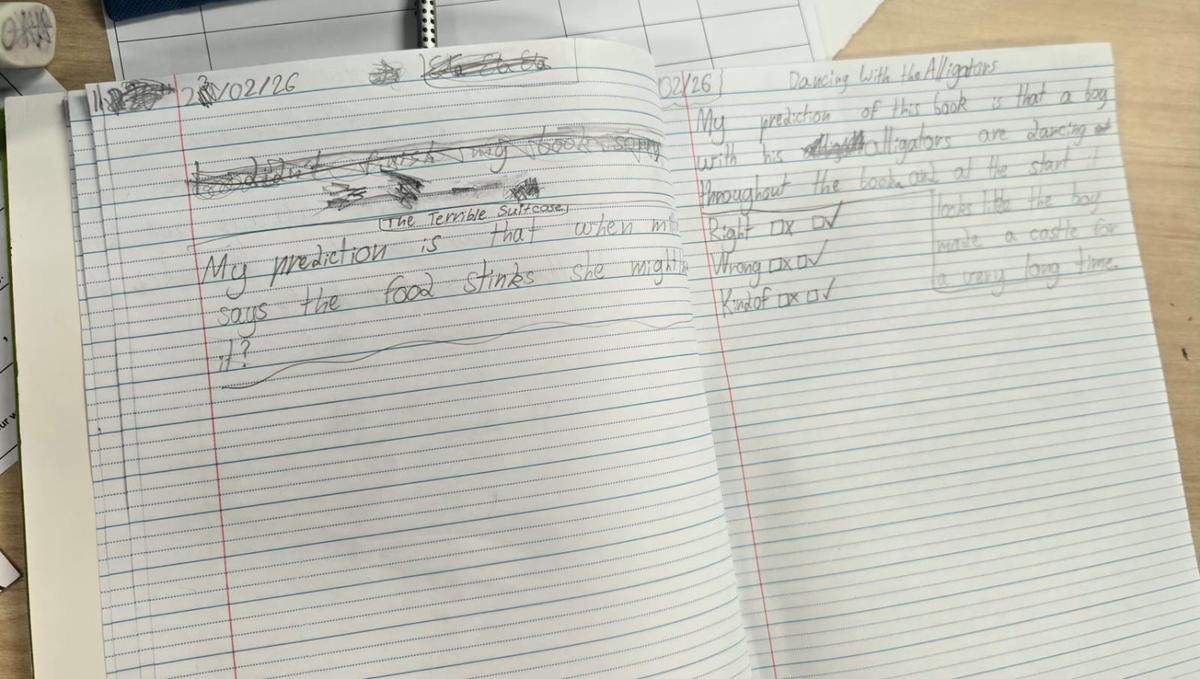 /02/26
I didn't finish my book sorry
The Terrible Suitcase
My prediction is that when
says the food stinks she might
it?
02/26
Dancing With the Alligators
My prediction of this book is that a boy
with his alligators are dancing
throughout the book and at the start it
looks like the boy
made a castle for
a very long time.
Right □x □✓
Wrong □x □✓
Kind of □x □✓